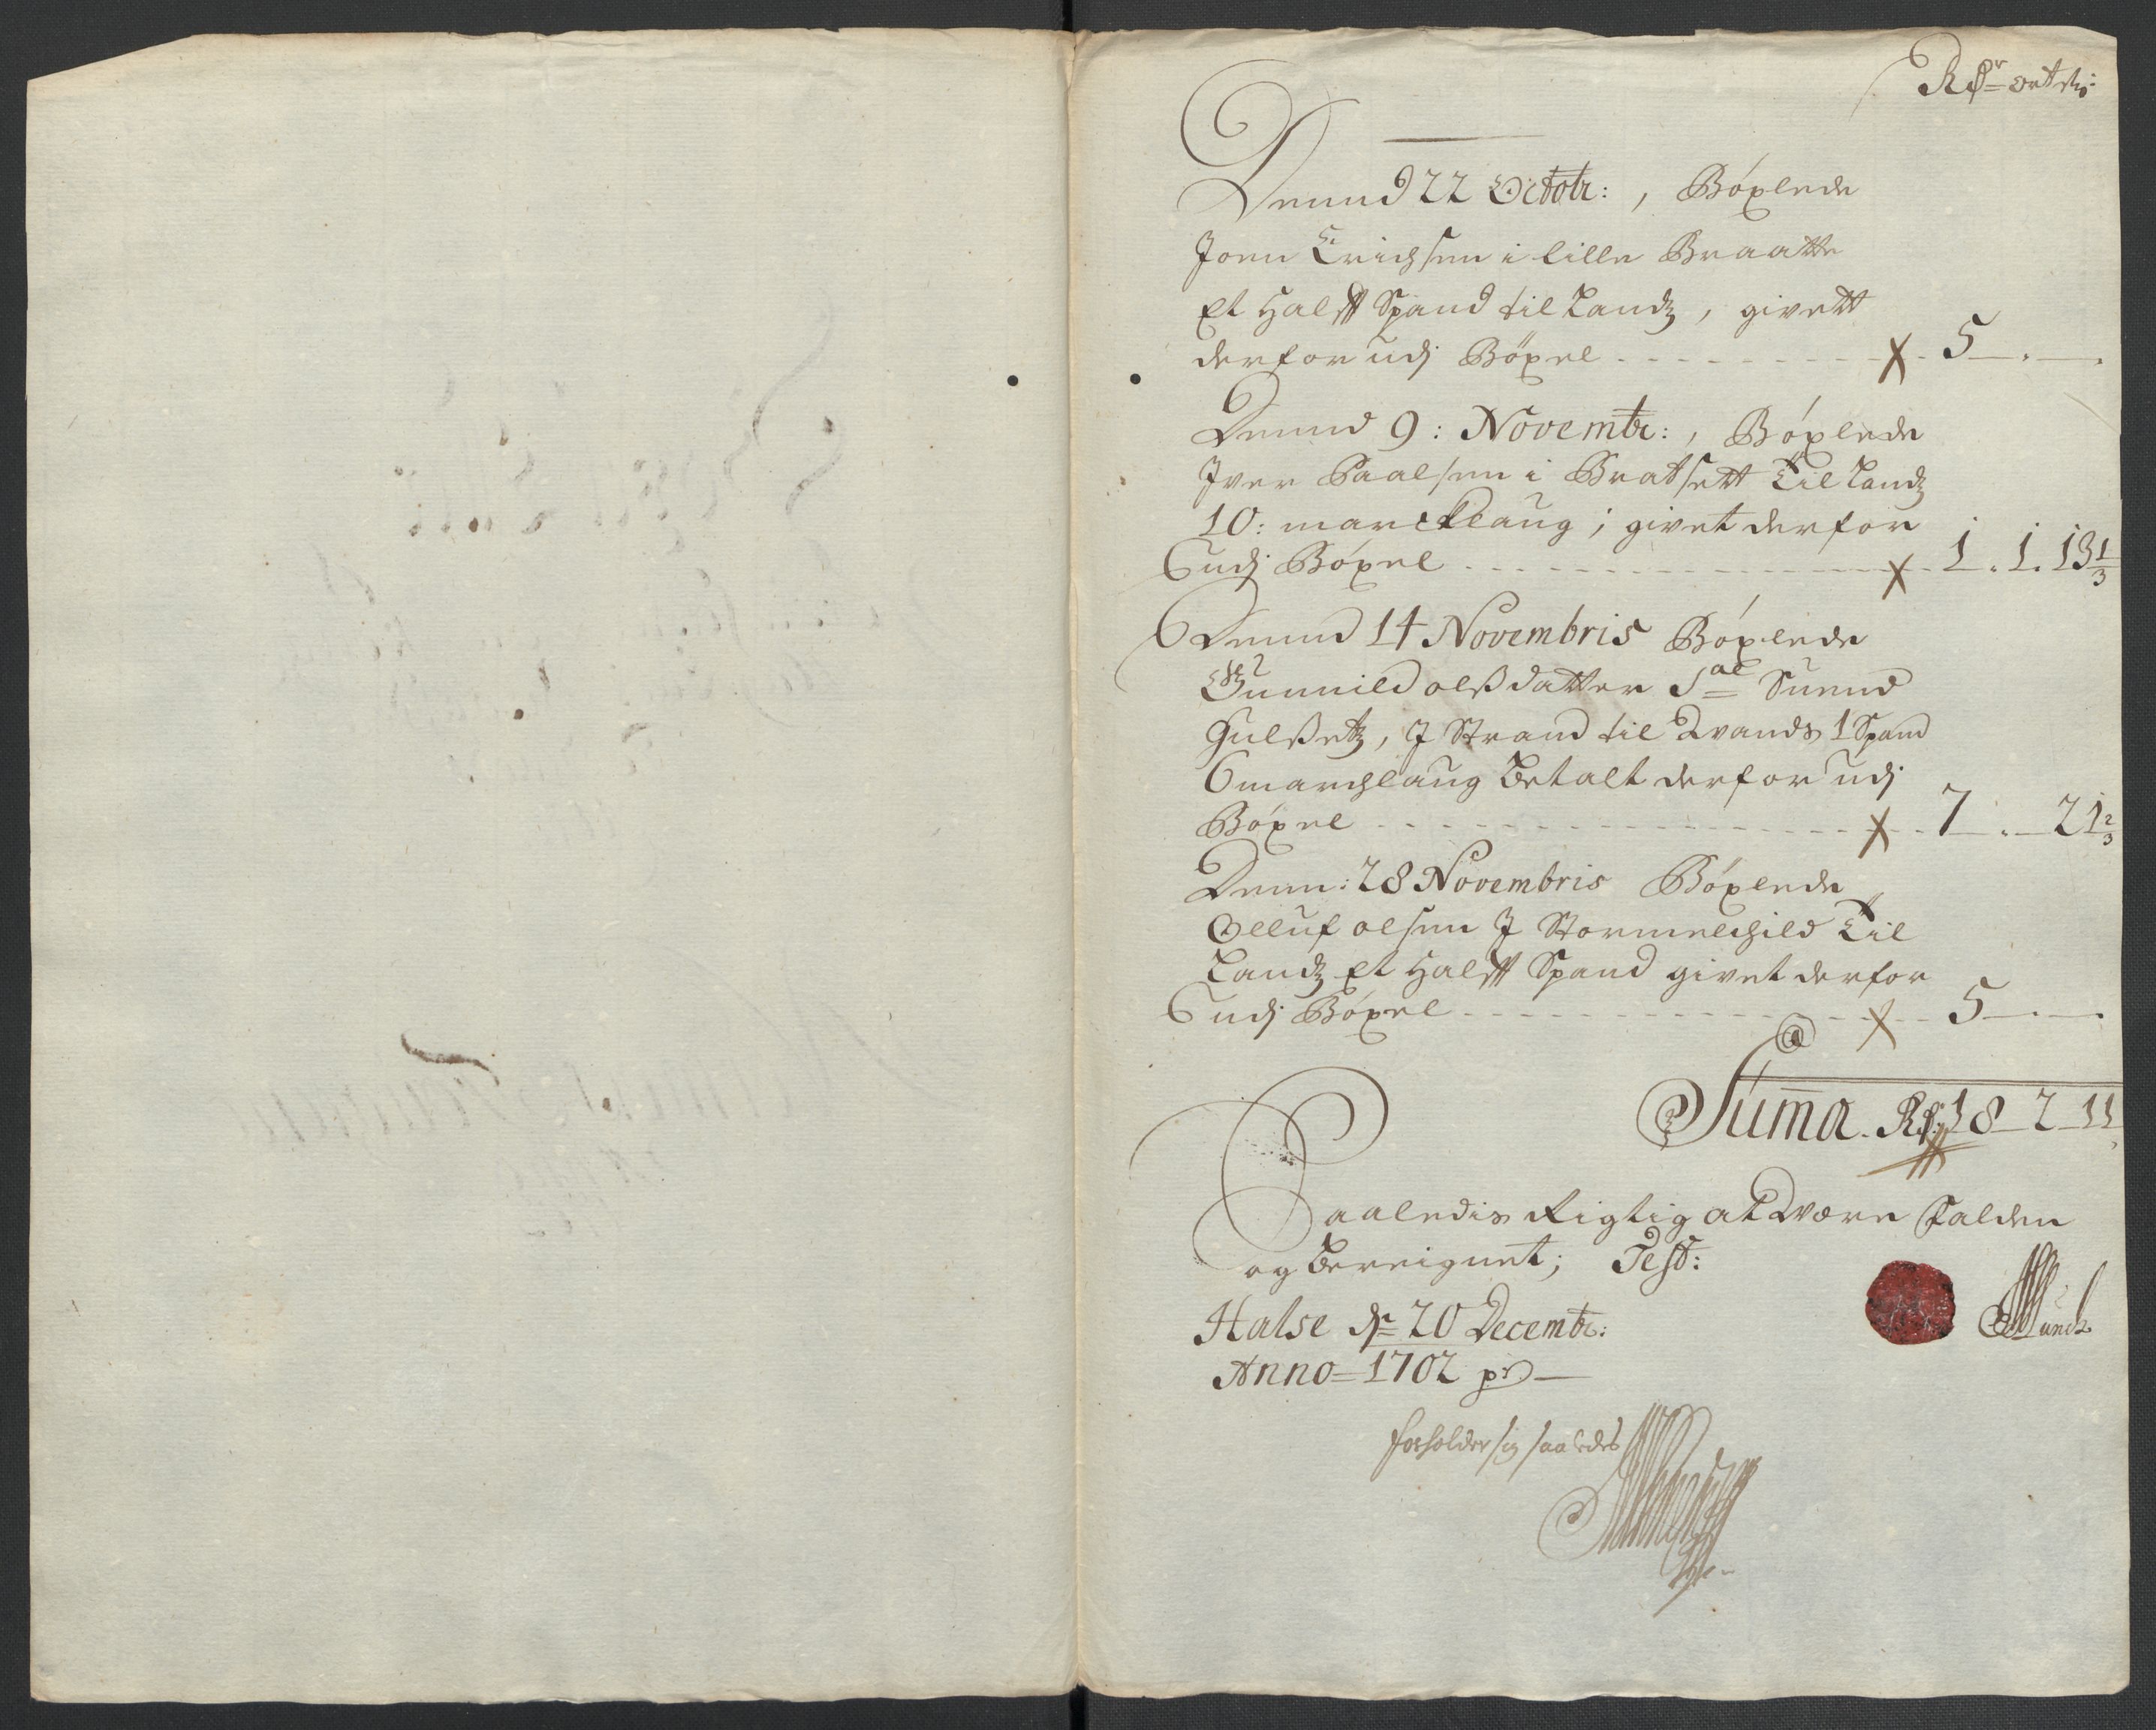 Rdr ort sk:
Dennd 22 Octobr:, Böxlede
Joen Erichsen i lille Braatte
Et Halfft Spand til Landz, givett
derfor udj Böxel - - - 5 — . — .
Dennd 9: Novembr:, Böxlede
Iver Paalsen i Bratsett Til Landz
10: marcklaug; givet derfor
udj Böxel - - - 1. 1. 13 1/3
Dennd 14 Novembris Böxlede
Gunnild olssdatter Sal Suend
, J Strand til Lands 1 Spand
6 marchlaug betalt derfor udj
Böxel - - - 7 . — 21 2/3
Denn: 28 Novembris Böxlede
Olluf olsen J Til
Landz Et Halfft Spand givet derfor
udj Böxel - - - 5 — . — .
Suma. Rd 18 – 2 – 11
Saaledis Rigtig at Være falden
og bereignet; Test:
Halse dn 20 Decembr:
Anno = 1702
Munch
forholder sig saaledes